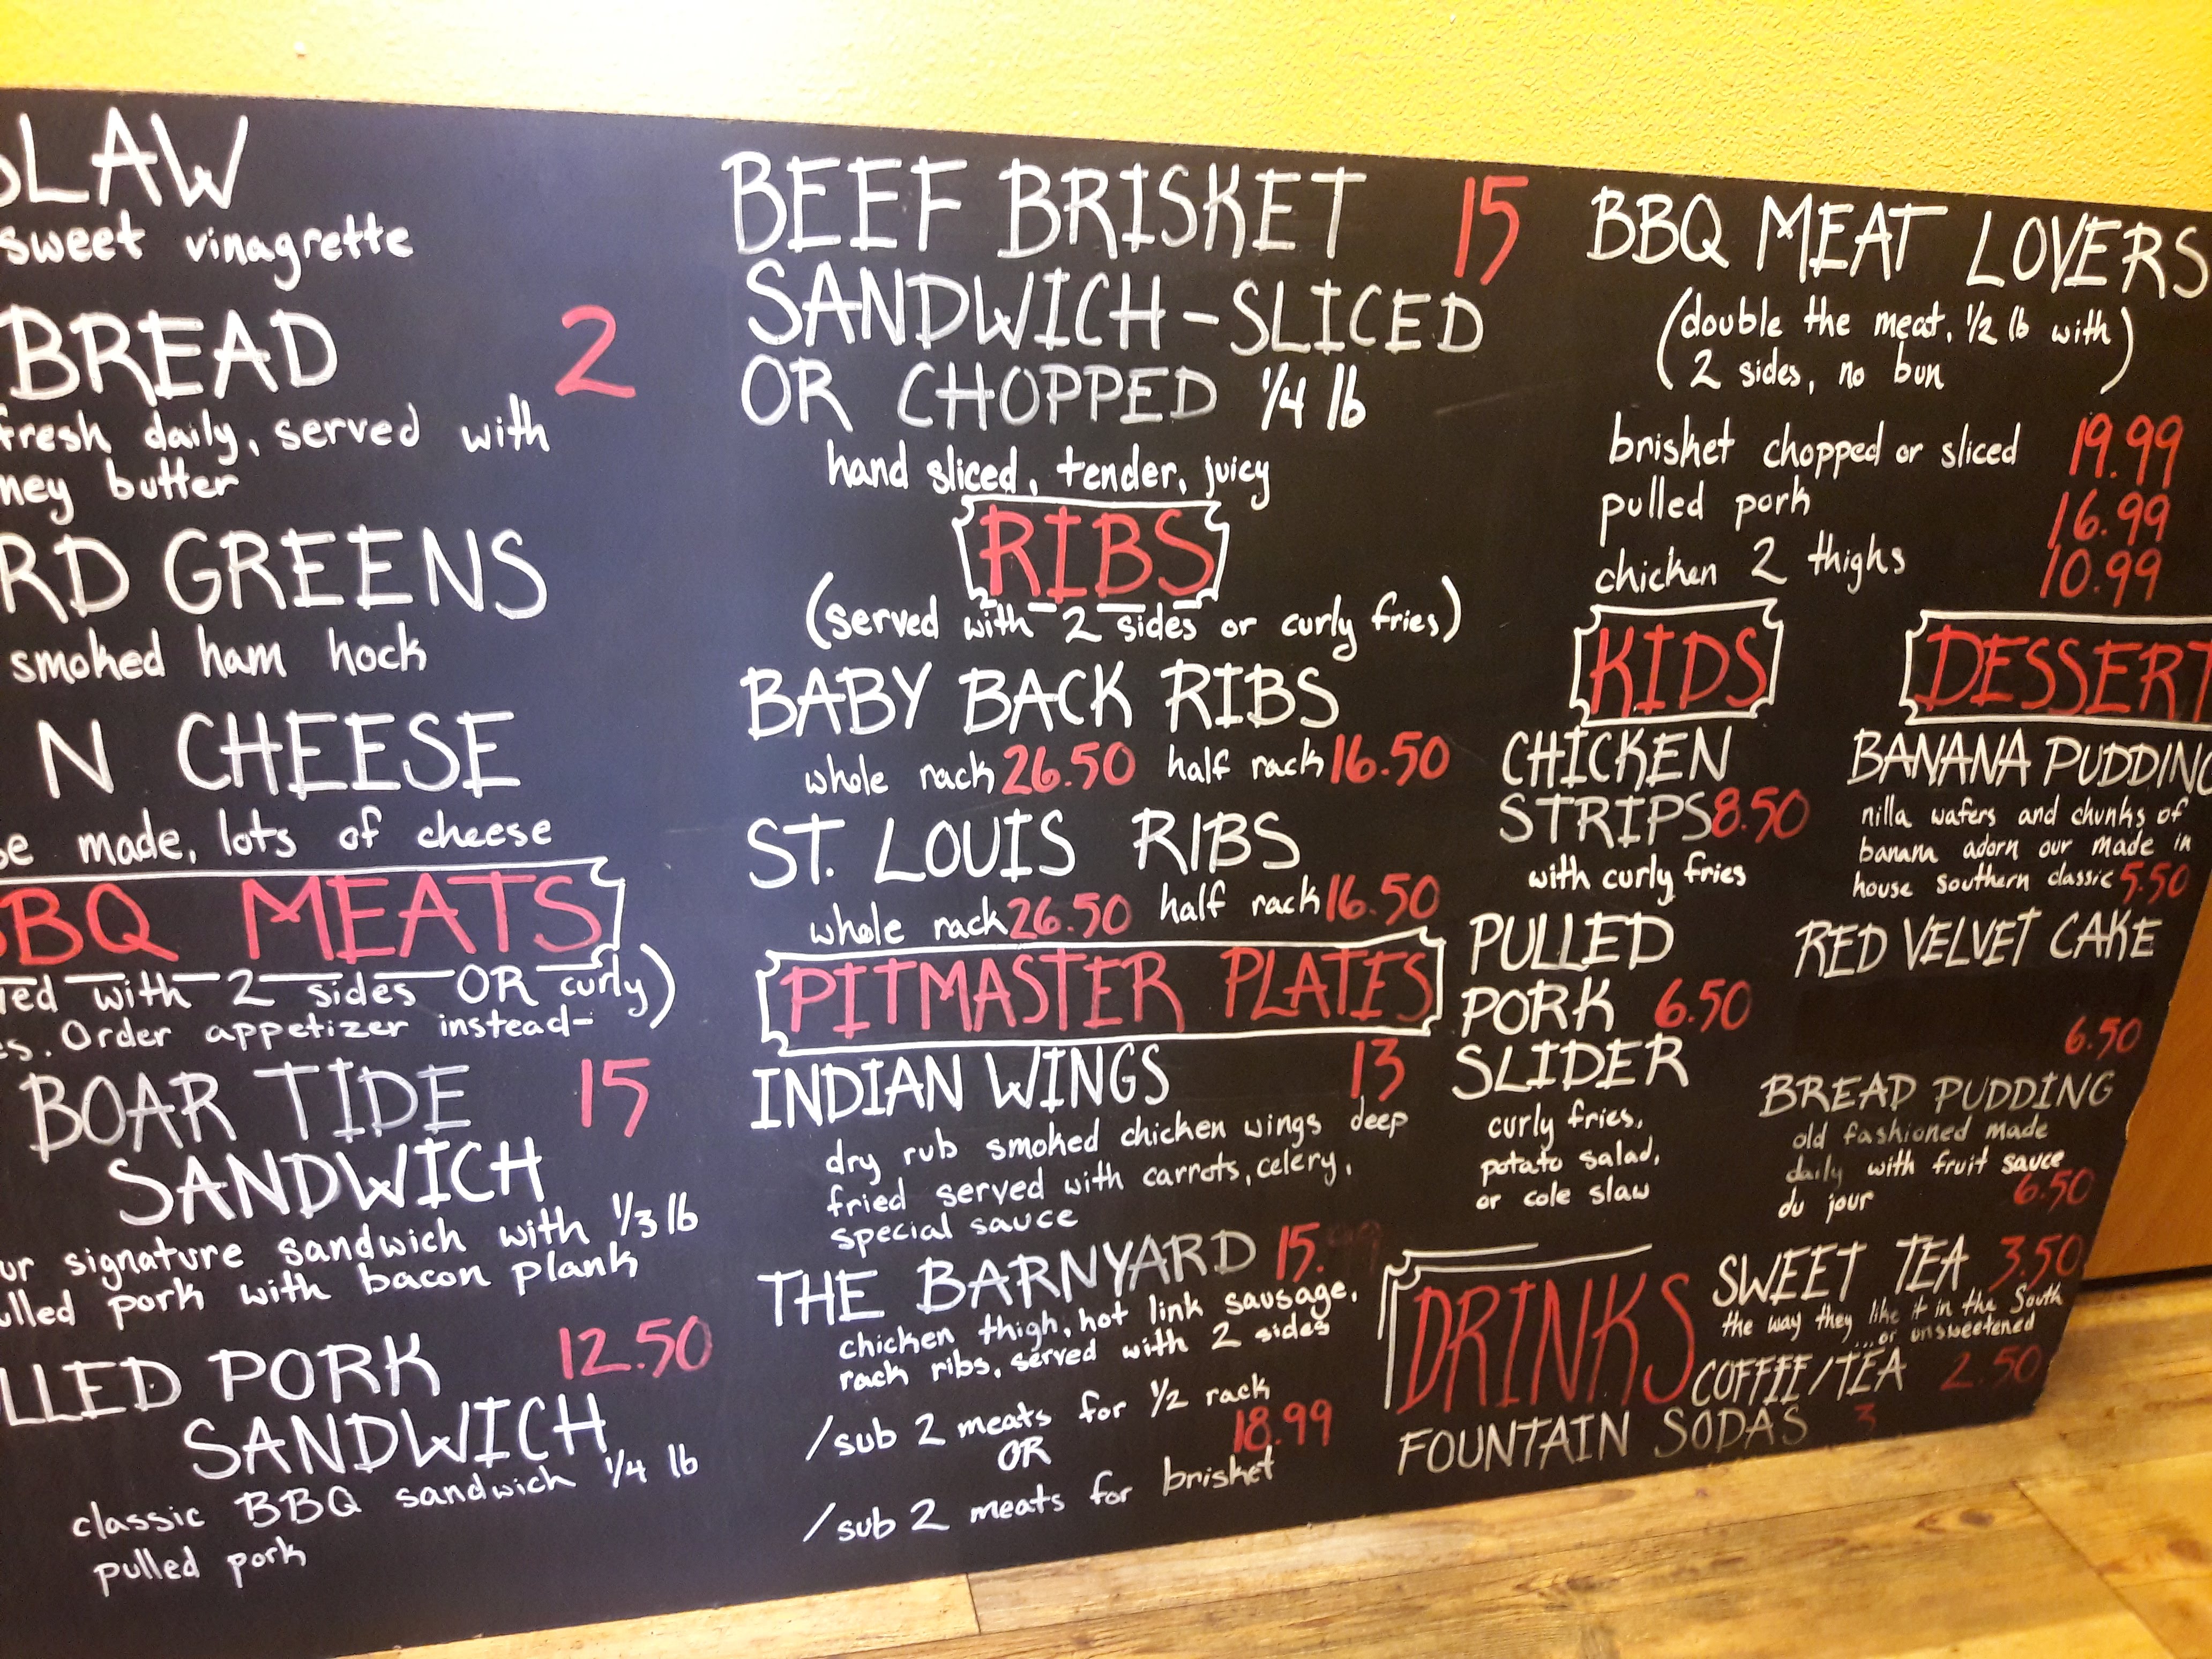 SLAW
sweet vinagrette
BREAD 2
fresh daily, served with
ney butter
RD GREENS
smoked ham hock
N CHEESE
se made, lots of cheese
BBQ MEATS
ed with 2 sides OR curly)
s. Order appetizer instead-
BOAR TIDE 15
SANDWICH
ur signature sandwich with 1/3 lb
ulled pork with bacon plank
LLED PORK 12.50
SANDWICH
classic BBQ sandwich 1/4 lb
pulled pork
BEEF BRISKET 15
SANDWICH-SLICED
OR CHOPPED 1/4 lb
hand sliced, tender, juicy
RIBS
(served with 2 sides or curly fries)
BABY BACK RIBS
whole rack 26.50 half rack 16.50
ST. LOUIS RIBS
whole rack 26.50 half rack 16.50
PITMASTER PLATES
INDIAN WINGS 13
dry rub smoked chicken wings deep
fried served with carrots, celery,
special sauce
THE BARNYARD 15.99
chicken thigh, hot link sausage,
rack ribs, served with 2 sides
/sub 2 meats for 1/2 rack
OR 18.99
/sub 2 meats for brisket
BBQ MEAT LOVERS
(double the meat, 1/2 lb with
2 sides, no bun)
brisket chopped or sliced 19.99
pulled pork 16.99
chicken 2 thighs 10.99
KIDS
CHICKEN
STRIPS 8.50
with curly fries
PULLED
PORK 6.50
SLIDER
curly fries,
potato salad,
or cole slaw
DESSERT
BANANA PUDDING
nilla wafers and chunks of
banana adorn our made in
house southern classic 5.50
RED VELVET CAKE
6.50
BREAD PUDDING
old fashioned made
daily with fruit sauce
du jour 6.50
DRINKS
SWEET TEA 3.50
the way they like it in the South
...or unsweetened
COFFEE/TEA 2.50
FOUNTAIN SODAS 3